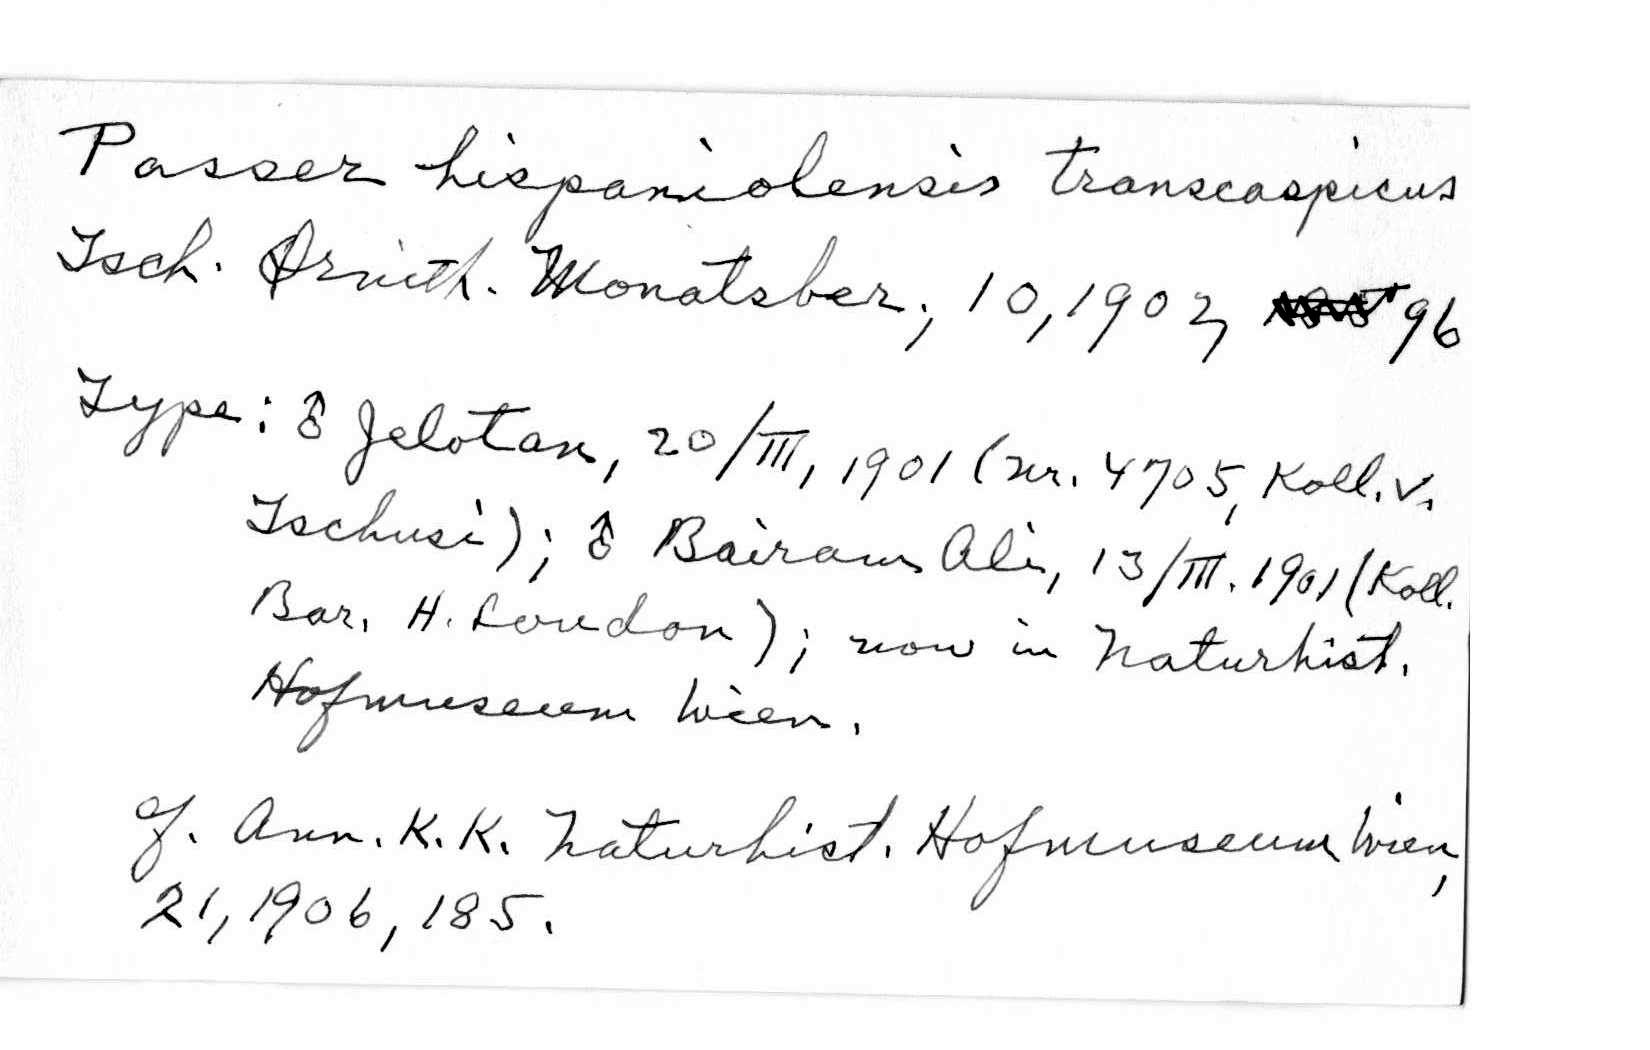 Passer hispaniolensis transcaspicus
Tsch. Ornith. Monatsber., 10, 1902, 96
Type: ♂ Jelotan, 20/III, 1901 (nr. 4705, Koll. v.
Tschusi); ♂ Bairam Ali, 13/III. 1901 (Koll.
Bar. H. Loudon); now in Naturhist.
Hofmuseum Wien.
cf. Ann. K. K. Naturhist. Hofmuseum Wien,
21, 1906, 185.